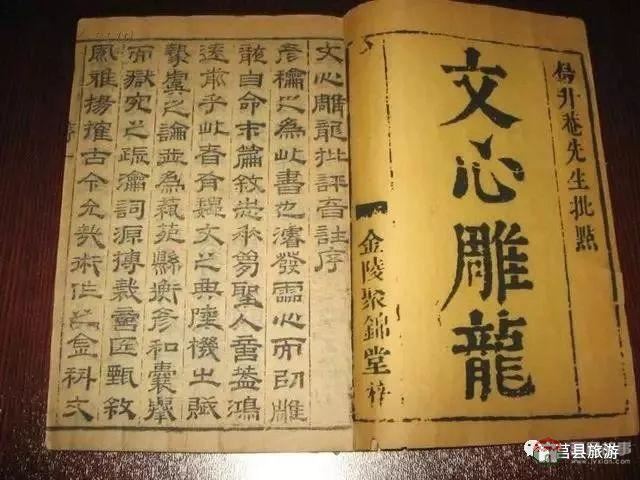 楊升菴先生批點
文心雕龍
金陵聚錦堂梓
文心雕龍批評音註序
彥龢之為此書也濬發靈心而以雕
龍自命末篇敘志夢聖人意益鴻
遠前乎此者有魏文之典陸機之賦
摯虞之論並為藝苑縣衡彥和囊舉
而獄究之疏瀹詞源摶裁意匠甄敘
風雅揚搉古今允哉術作之金科文
莒县旅游